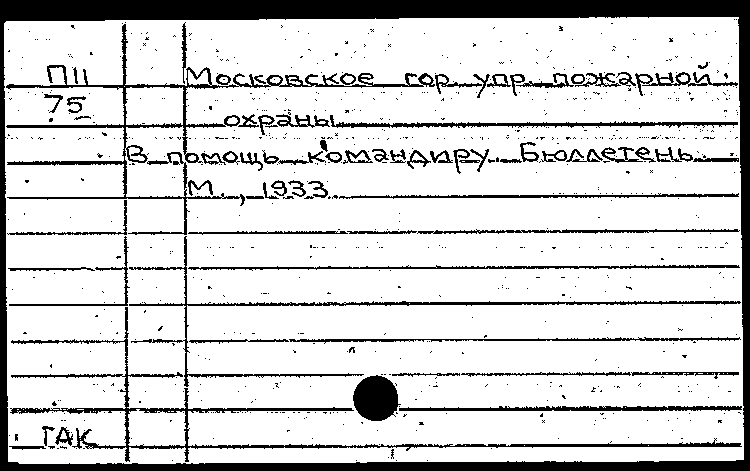 П11 Московское гор. упр. пожарной
75 охраны
В помощь командиру. Бюллетень.
М., 1933.
ГАК